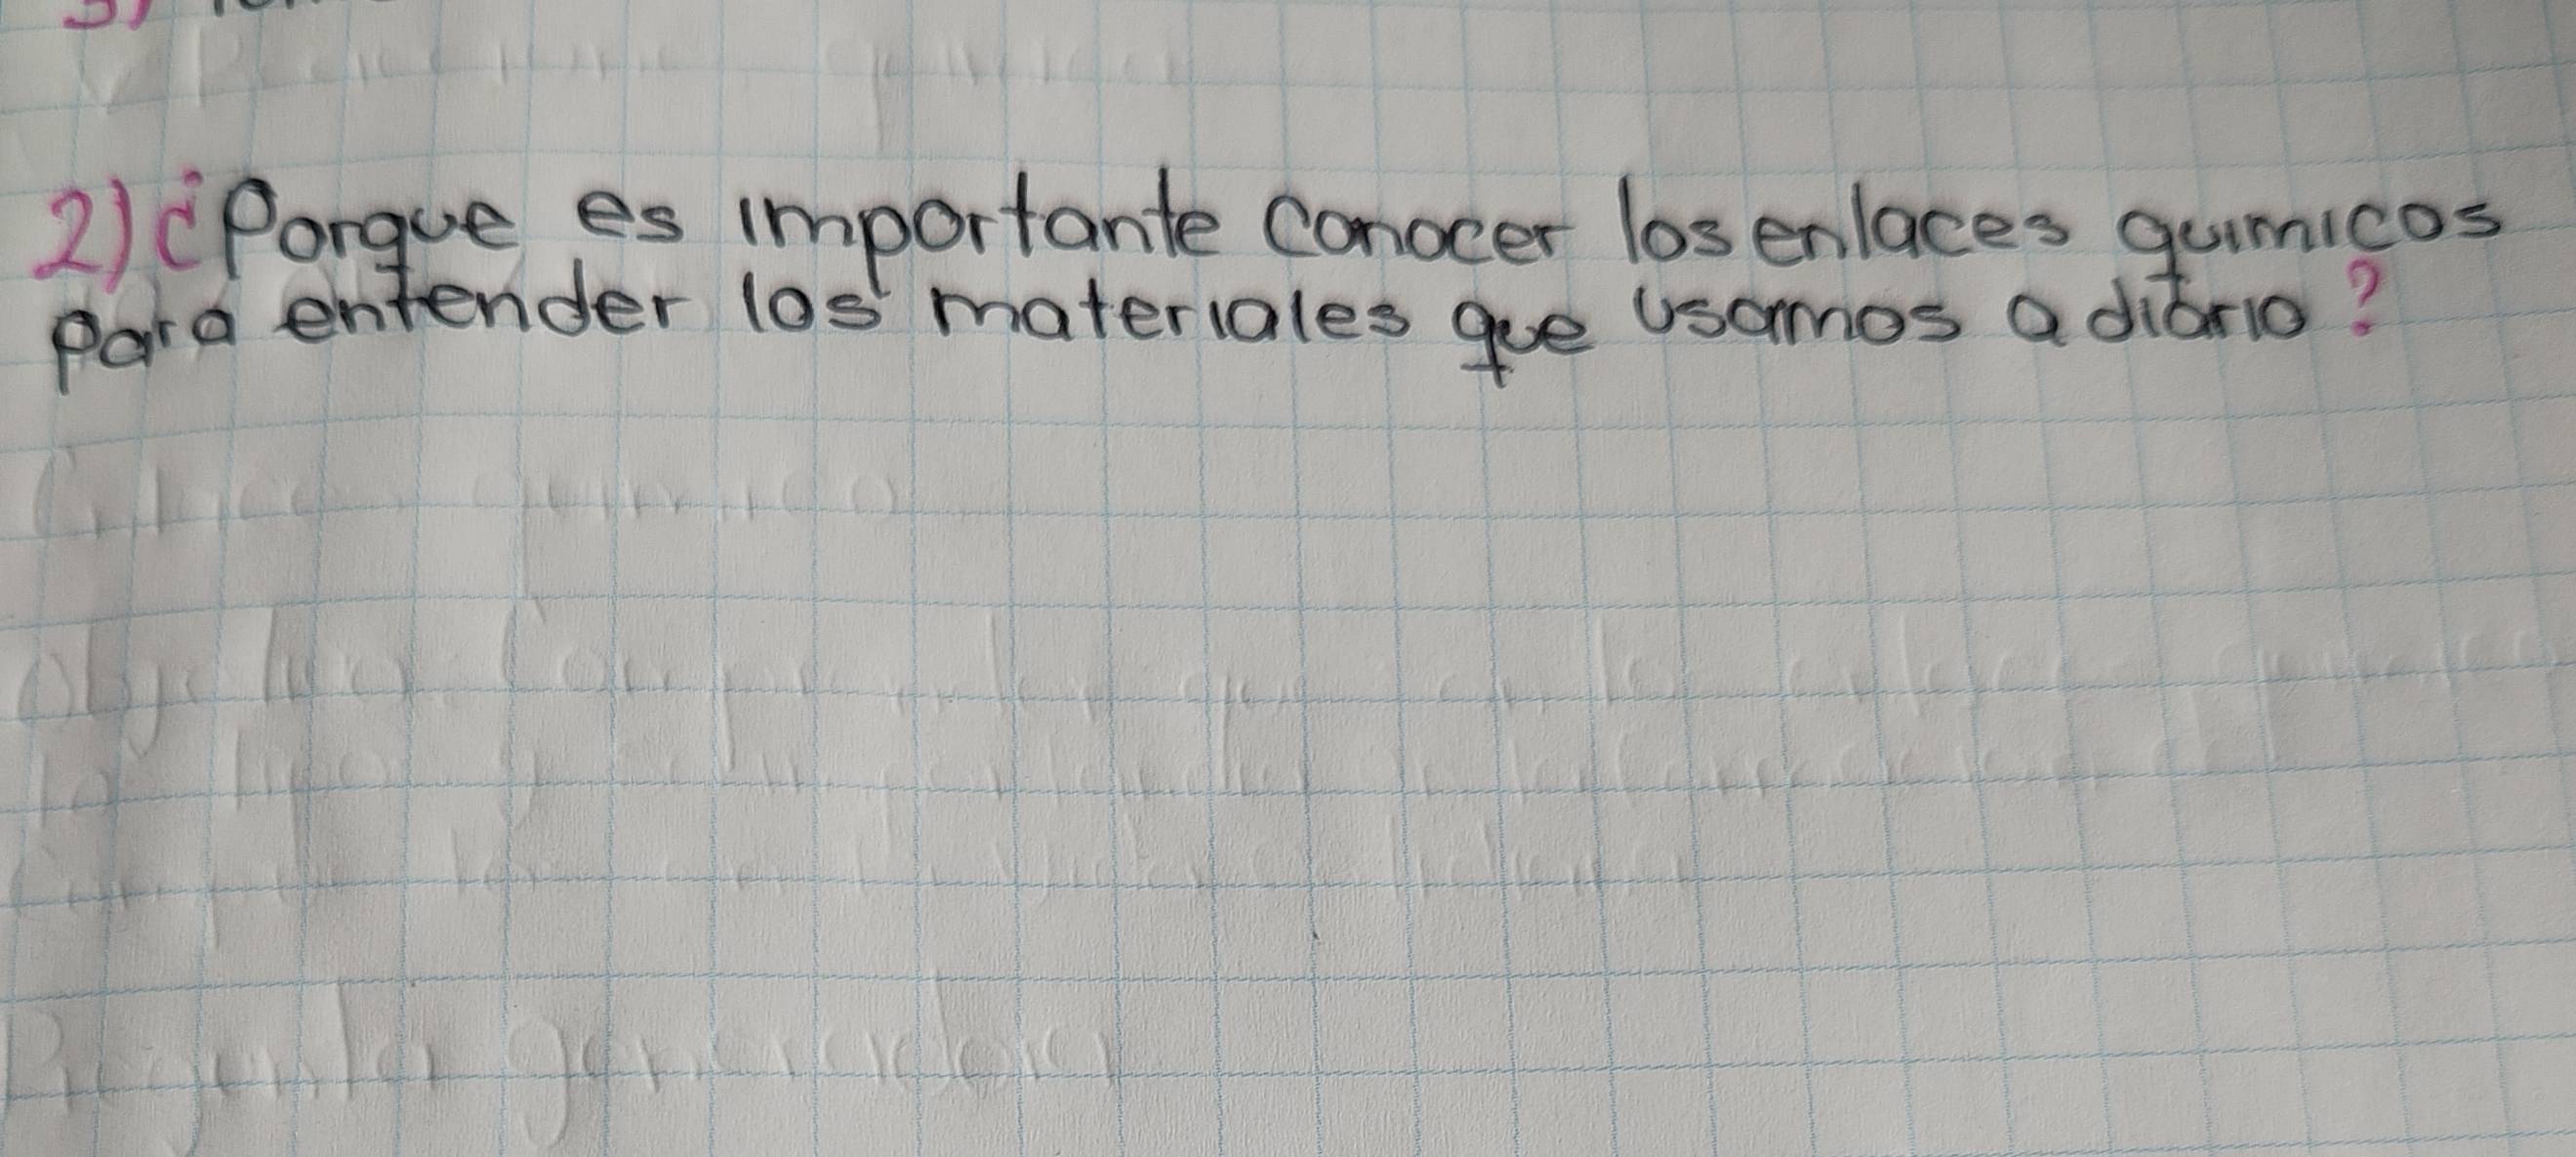 2) ¿Porque es importante conocer los enlaces quimicos
para entender los materiales que usamos a diario?